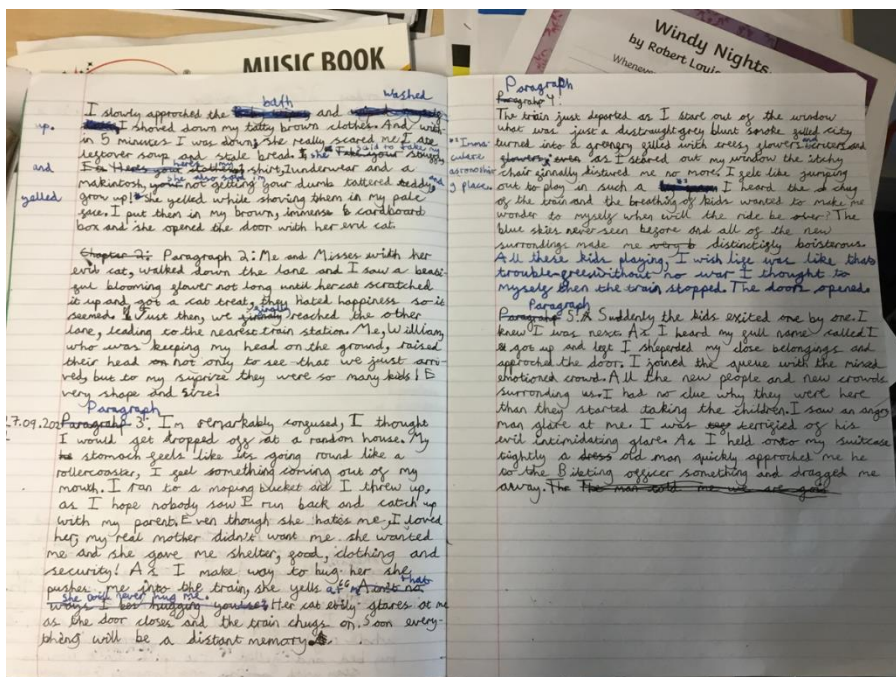 MUSIC BOOK
Windy Nights
by Robert Louis
Whenever
bath washed
I slowly approched the and
up. I shoved down my tatty brown clothes. And with-
in 5 minutes I was down, she really scared me. I ate
leftover soup and stale bread. she said to take my
and shirt, 1 underwear and a
she also said I'm and
makintosh, not getting your dumb tattered teddy,
yelled grow up! she yelled while shoving them in my pale
face. I put them in my brown, immense cardboard
box and she opened the door with her evil cat.
Chapter 2: Paragraph 2: Me and Misses with her
evil cat, walked down the lane and I saw a beati-
ful blooming flower not long until her cat scratched
it up and got a cat treat, they hated happiness so it
seemed. Just then, we finally reached the other
lane, leading to the nearest train station. Me, William,
who was keeping my head on the ground, raised
their head not only to see that we just arri-
ved, but to my suprize they were so many kids! E
very shape and size!
Paragraph
27.09.202 Paragraph 3: I'm remarkably confused, I thought
I would get dropped off at a random house. My
stomach feels like its going round like a
rollercoaster, I feel something coming out of my
mouth. I ran to a moping bucket and I threw up,
as I hope nobody saw I run back and catch up
with my parent. Even though she hates me, I loved
her, my real mother didn't want me. she wanted
me and she gave me shelter, food, clothing and
security! As I make way to hug her she
pushes me into the train, she yells at that
she will never hug me.
Her cat evily glares at me
as the door closes and the train chugs on. Soon every-
thing will be a distant memory.
Paragraph
Paragraph 4:
The train just departed as I stare out of the window
what was just a distraught grey blunt smoke filled city
turned into a grenery filled with trees, flowers and
as I stared out my window the itchy
chair finnally distured me no more. I felt like jumping
out to play in such a I heard the chug
of the train and the breathing of kids wanted to make me
wonder to myself when will the ride be over? The
blue skies never seen before and all of the new
surrondings made me distinctigly boisterous.
All these kids playing, I wish life was like that
trouble-free without no war I thought to
myself then the train stopped. The doors opened.
*Imma
culere
astonoshin
g place.
Paragraph
Paragraph 5: Suddenly the kids exited one by one. I
knew I was next. As I heard my full name called I
got up and left I sheperded my close belongings and
approched the door. I joined the queue with the mixed
emotioned crowd. All the new people and new crowde
surronding us. I had no clue why they were here
than they started taking the children. I saw an angry
man glare at me. I was terrified of his
evil intimidating glare. As I held onto my suitcase
tightly a old man quickly approched me he
to the Bileting officer something and dragged me
away. The The man told me we are goin